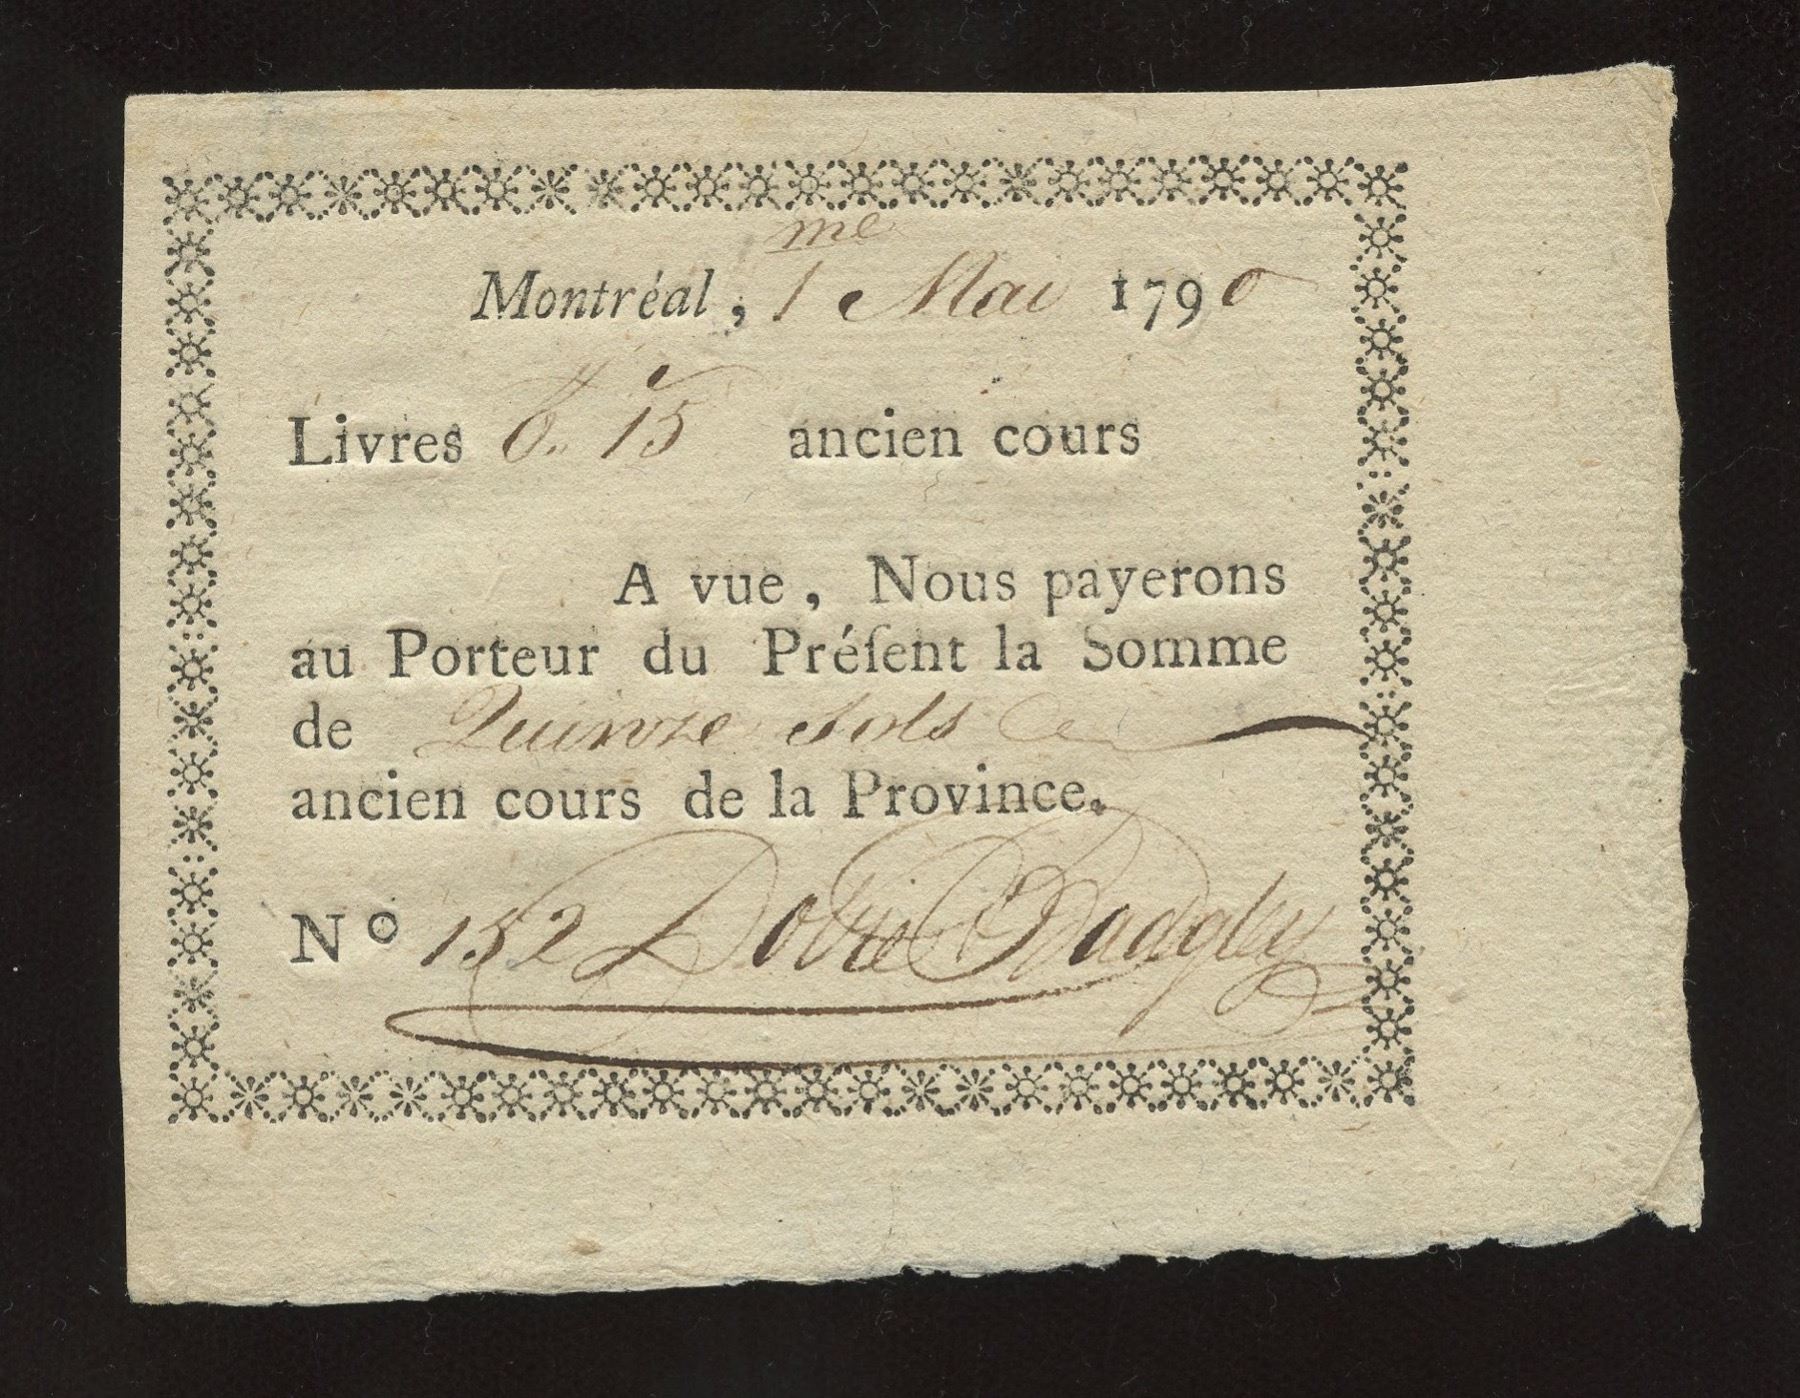 Montréal, 1me Mai 1790
Livres 0.. 15 ancien cours
A vue, Nous payerons
au Porteur du Préſent la Somme
de Quinze Sols
ancien cours de la Province.
No 152 Dobie & Badgley